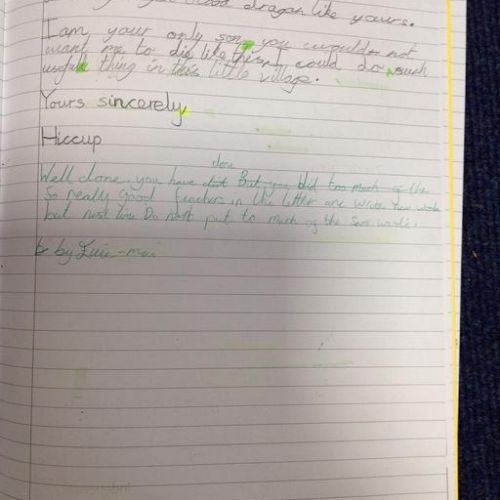 dragon like yours.
I am your only son you would not
want me to die like them I could do such
usefull thing in this little village.
Yours sincerely,
Hiccup
done
Well done you have But you did too much of the
So really good features in the letter one write
but next time Do not put to much of the
by